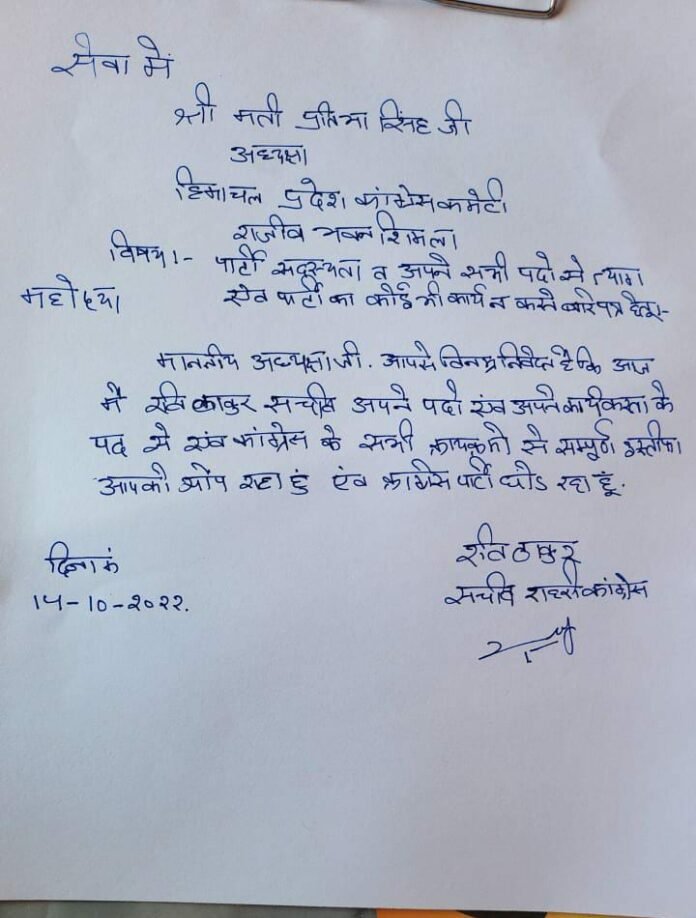 सेवा में
श्री मती प्रतिभा सिंह जी
अध्यक्षा
हिमाचल प्रदेश कांग्रेस कमेटी
राजीव भवन शिमला
विषय:- पार्टी सदस्यता व अपने सभी पदो से त्याग
महोदया एंव पार्टी का कोई भी कार्य न करने बारे पत्र हेतू:-
माननीय अध्यक्षा जी. आपसे विनम्र निवेदन है कि आज
मै रवि ठाकुर सचीव अपने पदो एंव अपने कार्यकरता के
पद से एंव कांग्रेस के सभी से सम्पूर्ण इस्तीफा
आपको सोंप रहा हुं एंव काग्रेस पार्टी छोड रहा हूं.
दिनाकं
14-10-2022.
रवि ठाकुर
सचीव कांग्रेस